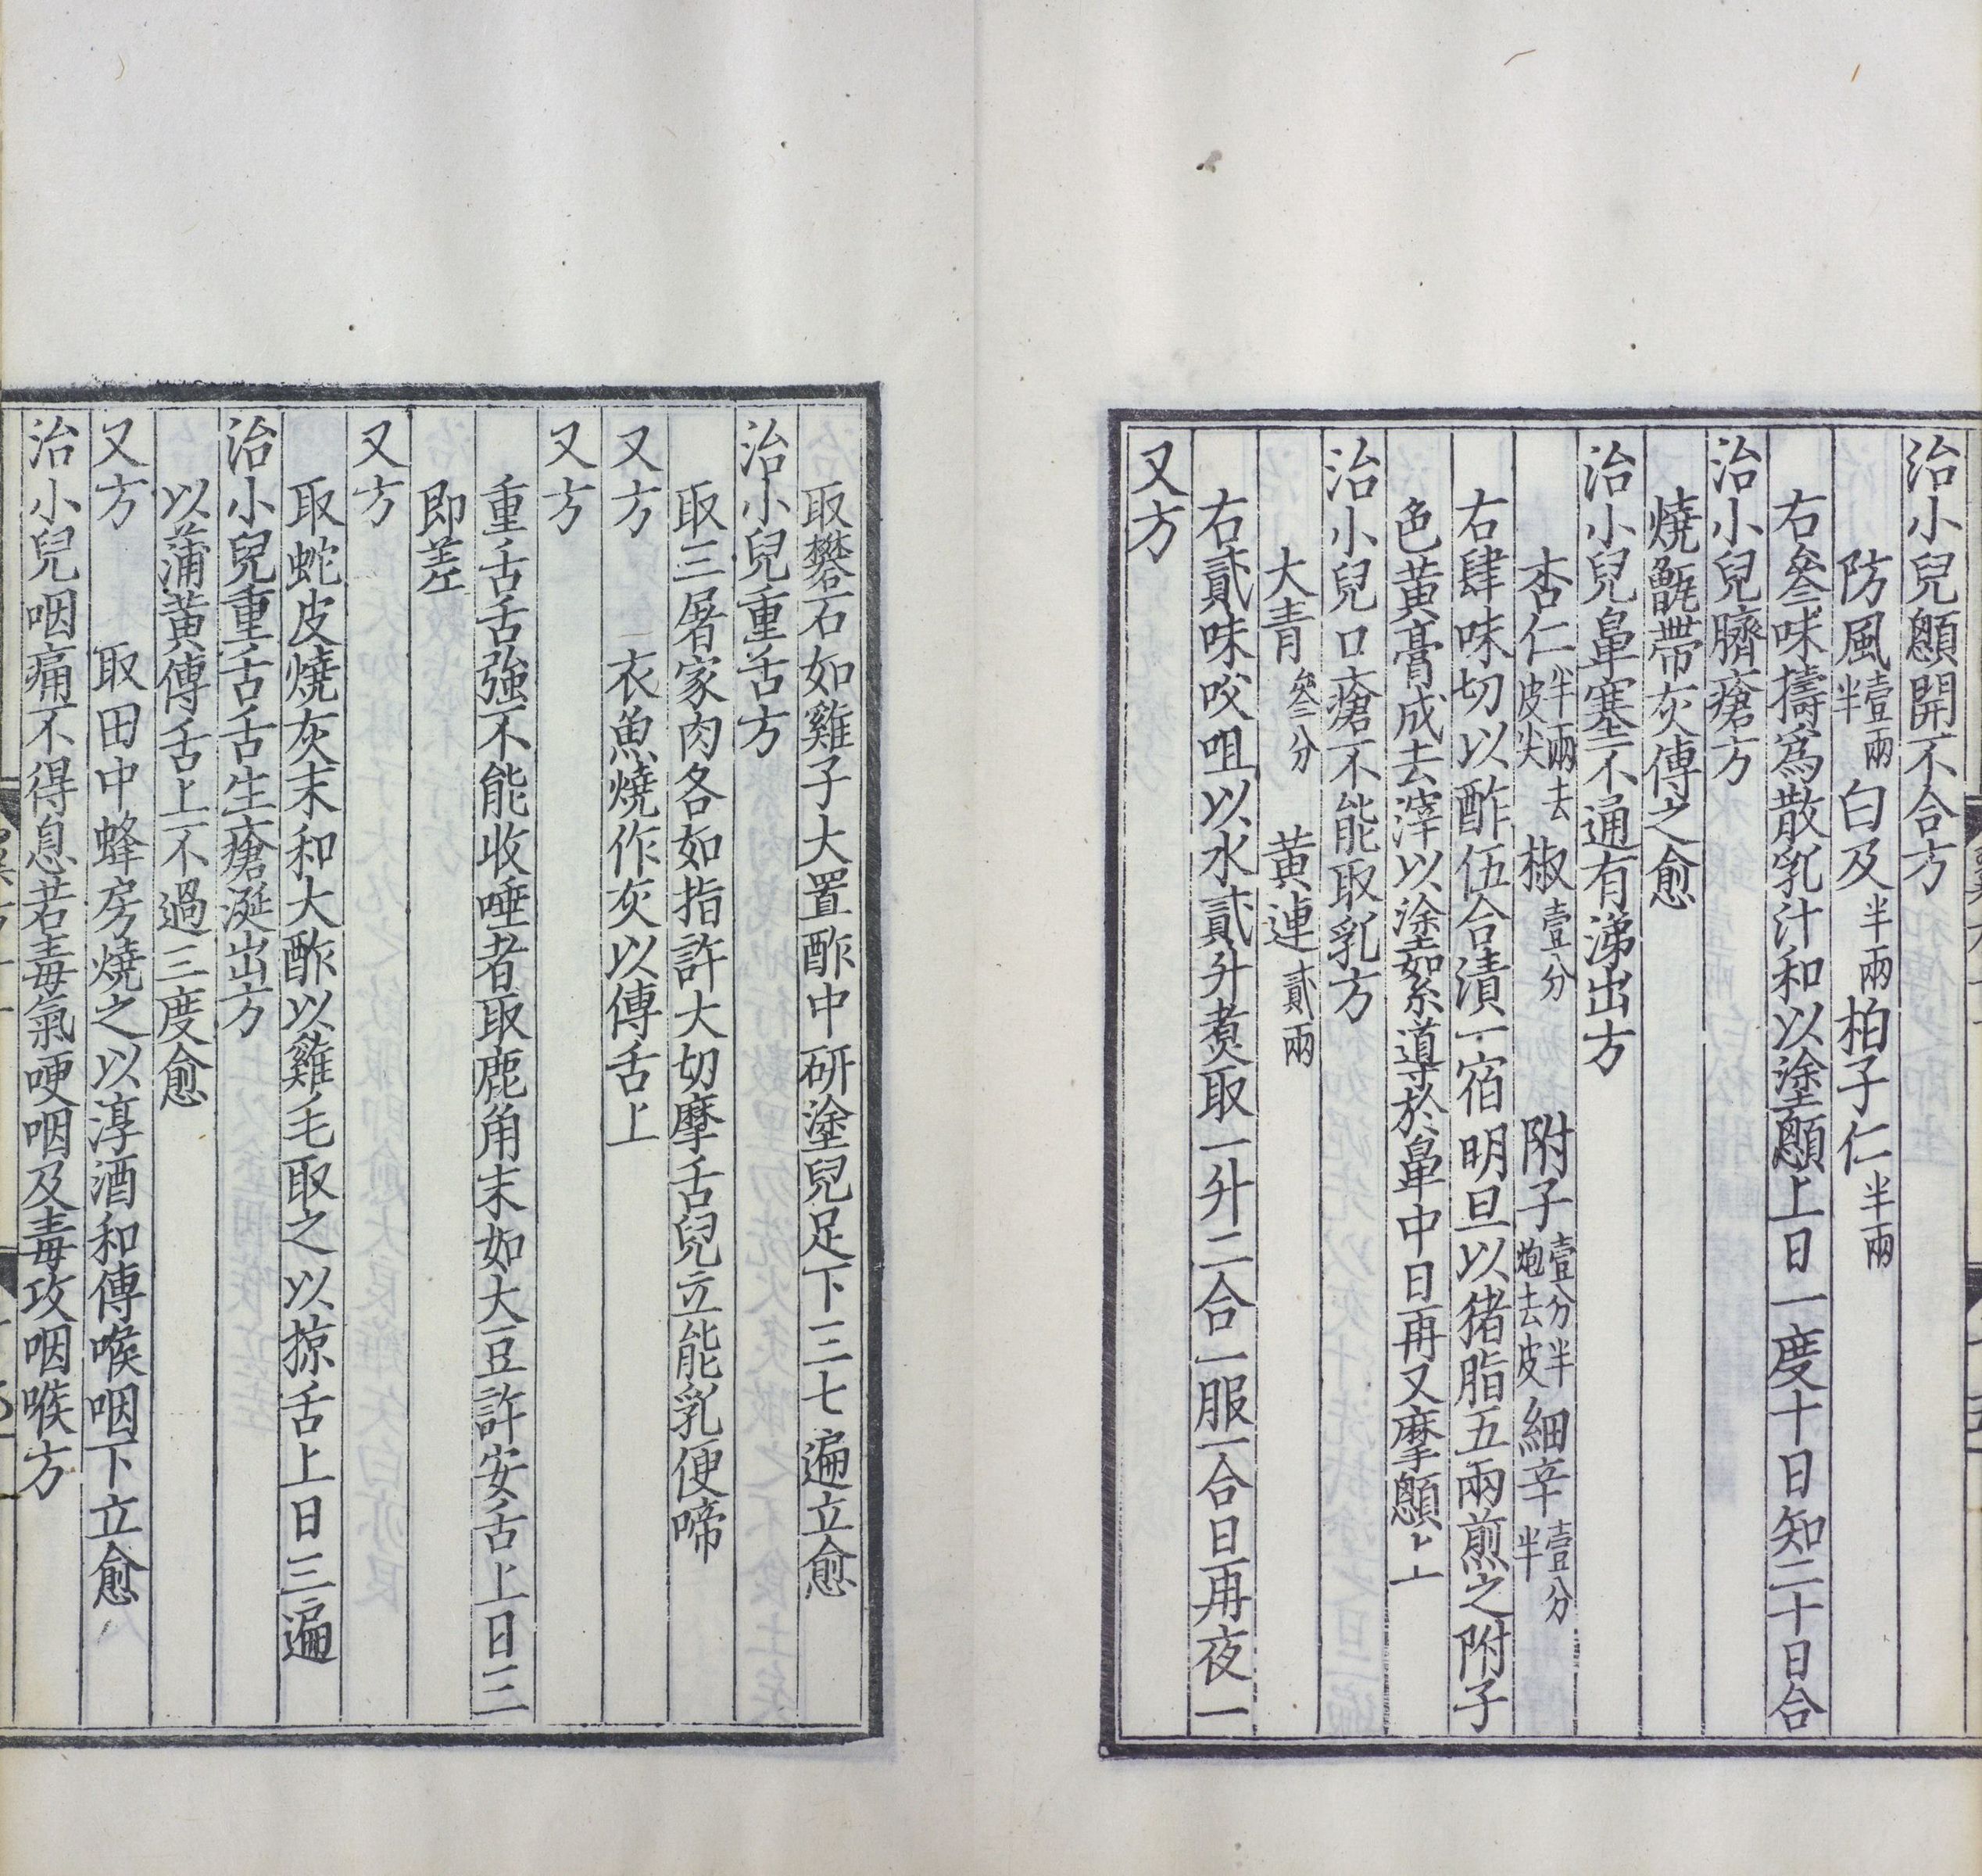 治小兒顖開不合方
防風壹兩半白及半兩柏子仁半兩
右叄味擣爲散乳汁和以塗顖上日一度十日知二十日合
治小兒臍瘡方
燒甑帶灰傅之愈
治小兒鼻塞不通有涕出方
杏仁半兩去皮尖椒壹分附子壹分半炮去皮細辛壹分半
右肆味切以酢伍合漬一宿明旦以猪脂五兩煎之附子
色黃膏成去滓以塗絮導於鼻中日再又摩顖上
治小兒口瘡不能取乳方
大青叄分黃連貳兩
右貳味㕮咀以水貳升煑取一升二合一服一合日再夜一
又方
取礬石如雞子大置酢中研塗兒足下三七遍立愈
治小兒重舌方
取三屠家肉各如指許大切摩舌兒立能乳便啼
又方 衣魚燒作灰以傅舌上
又方
重舌舌強不能收唾者取鹿角末如大豆許安舌上日三
即差
又方
取蛇皮燒灰末和大酢以雞毛取之以掠舌上日三遍
治小兒重舌舌生瘡涎出方
以蒲黃傅舌上不過三度愈
又方 取田中蜂房燒之以淳酒和傅喉咽下立愈
治小兒咽痛不得息若毒氣哽咽及毒攻咽喉方